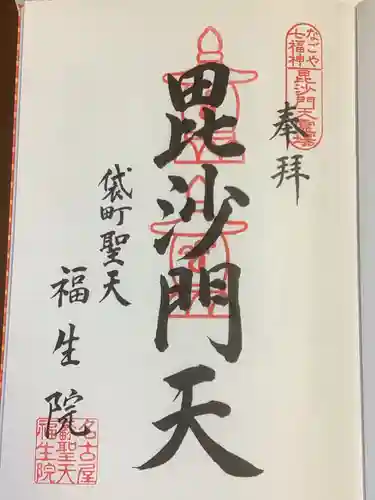 なごや
七福神
毘沙門天霊場
奉拝
毘沙門天
袋町聖天
福生院
名古屋
聖天
福生院